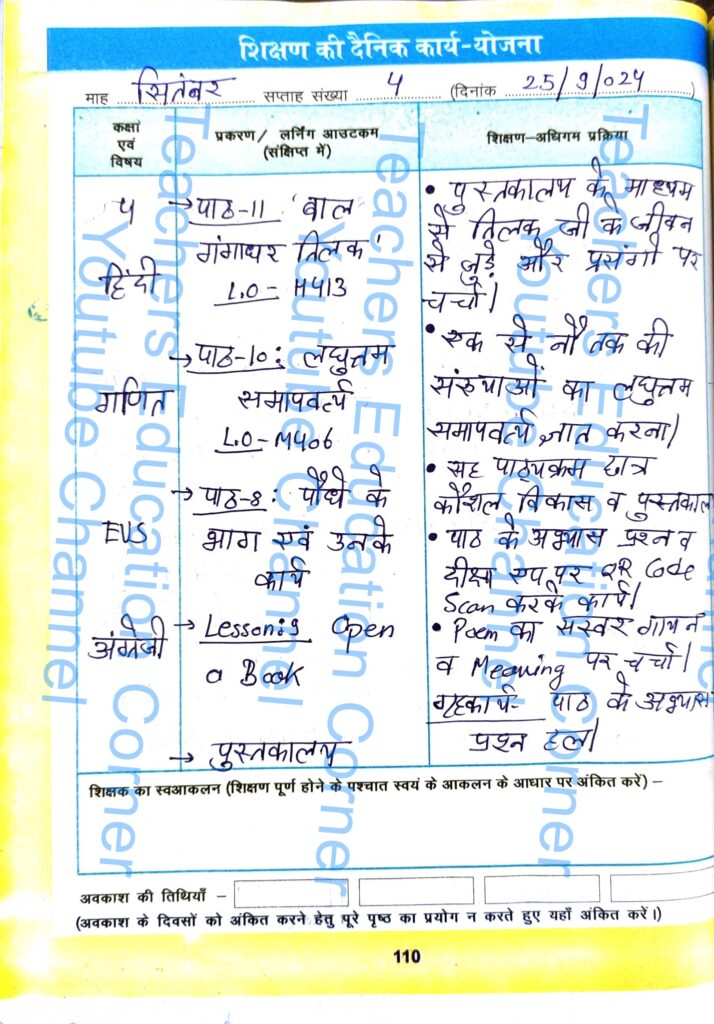 शिक्षण की दैनिक कार्य-योजना
माह सितंबर सप्ताह संख्या 4 (दिनांक 25/9/024)
कक्षा
एवं
विषय
प्रकरण/ लर्निंग आउटकम
(संक्षिप्त में)
शिक्षण-अधिगम प्रक्रिया
५
हिंदी
→ पाठ-11 'बाल
गंगाधर तिलक'
L.O- H413
• पुस्तकालय के माध्यम
से तिलक जी के जीवन
से जुड़े और प्रसंगो पर
चर्चा।
गणित
→ पाठ-10: लघुत्तम
समापवर्त्य
L.O-M406
• एक से नौ तक की
संख्याओं का लघुत्तम
समापवर्त्य ज्ञात करना।
EVS
→ पाठ-8: पौधे के
भाग एवं उनके
कार्य
• सह पाठ्यक्रम छात्र
कौशल विकास व पुस्तकाल
• पाठ के अभ्यास प्रश्न व
दीक्षा एप पर QR Code
Scan करके कार्य।
अंग्रेजी
→ Lesson:9 Open
a Book
• Poem का सस्वर गायन
व Meaning पर चर्चा।
गृहकार्य- पाठ के अभ्यास
प्रश्न हल।
→ पुस्तकालय
शिक्षक का स्वआकलन (शिक्षण पूर्ण होने के पश्चात स्वयं के आकलन के आधार पर अंकित करें) –
अवकाश की तिथियाँ –
(अवकाश के दिवसों को अंकित करने हेतु पूरे पृष्ठ का प्रयोग न करते हुए यहाँ अंकित करें।)
110
Teachers Education Corner
Youtube Channel
Teachers Education Corner
Youtube Channel
Teachers Education Corner
Youtube Channel